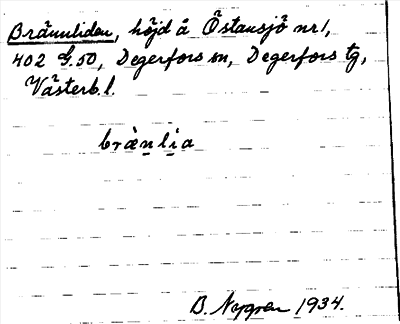 Brännliden, höjd å Östansjö nr 1,
402 G.50, Degerfors sn, Degerfors tg,
Västerb.l.
bræ̀nlia
B. Nygren 1934.